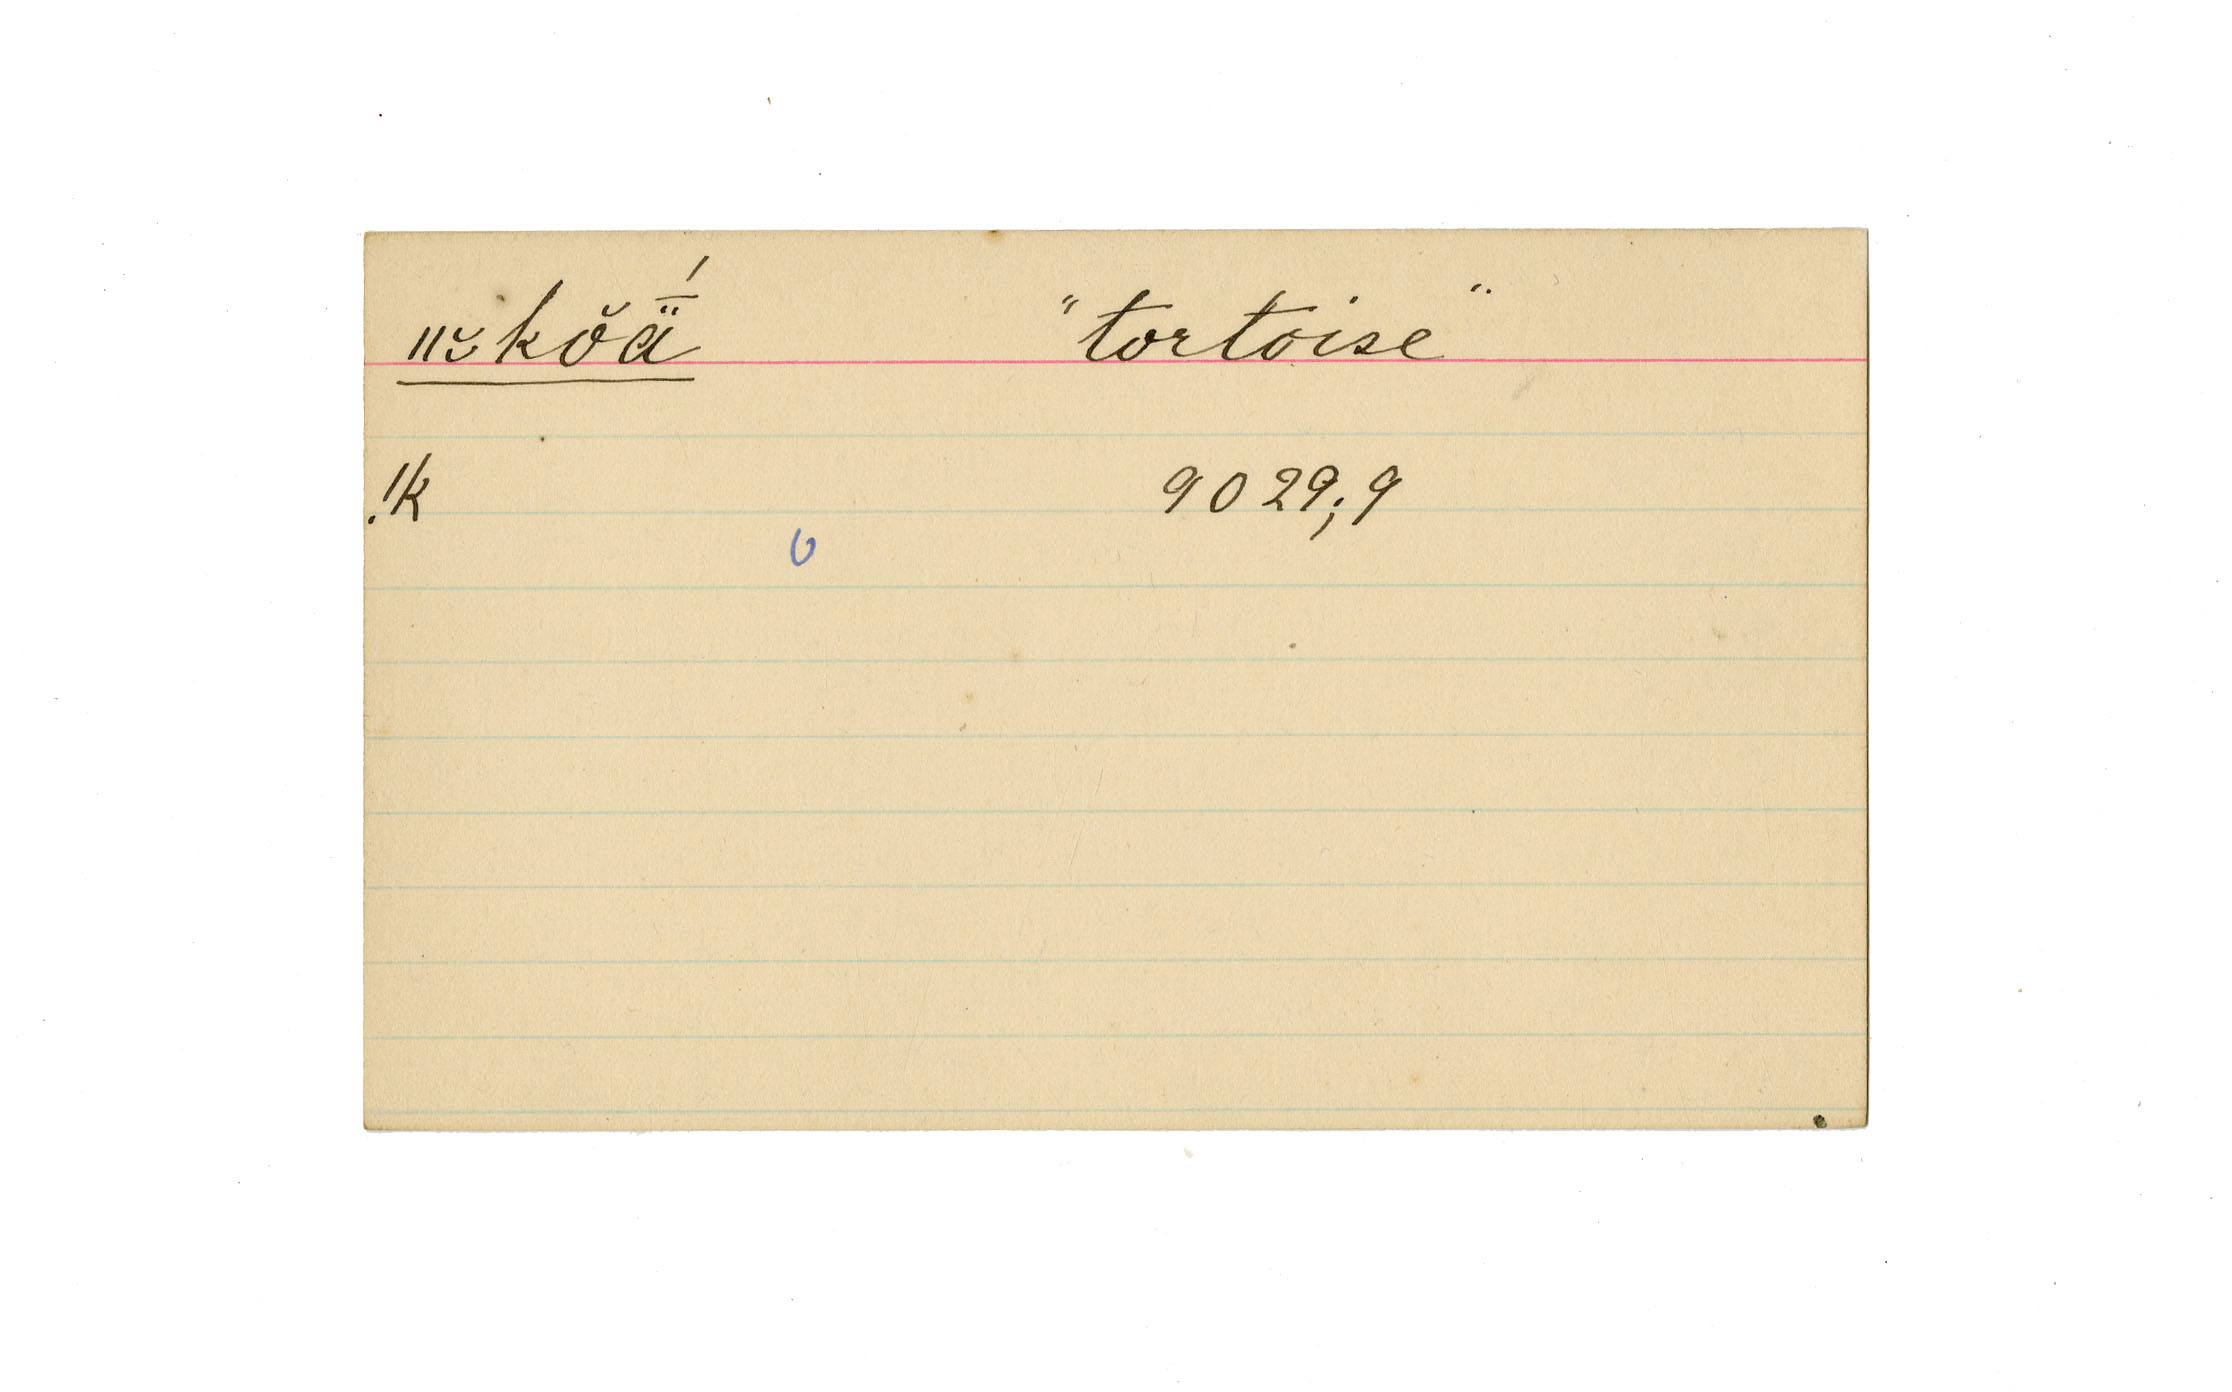 ǁ˘kŏǟ́ "tortoise"
!k 9029;9